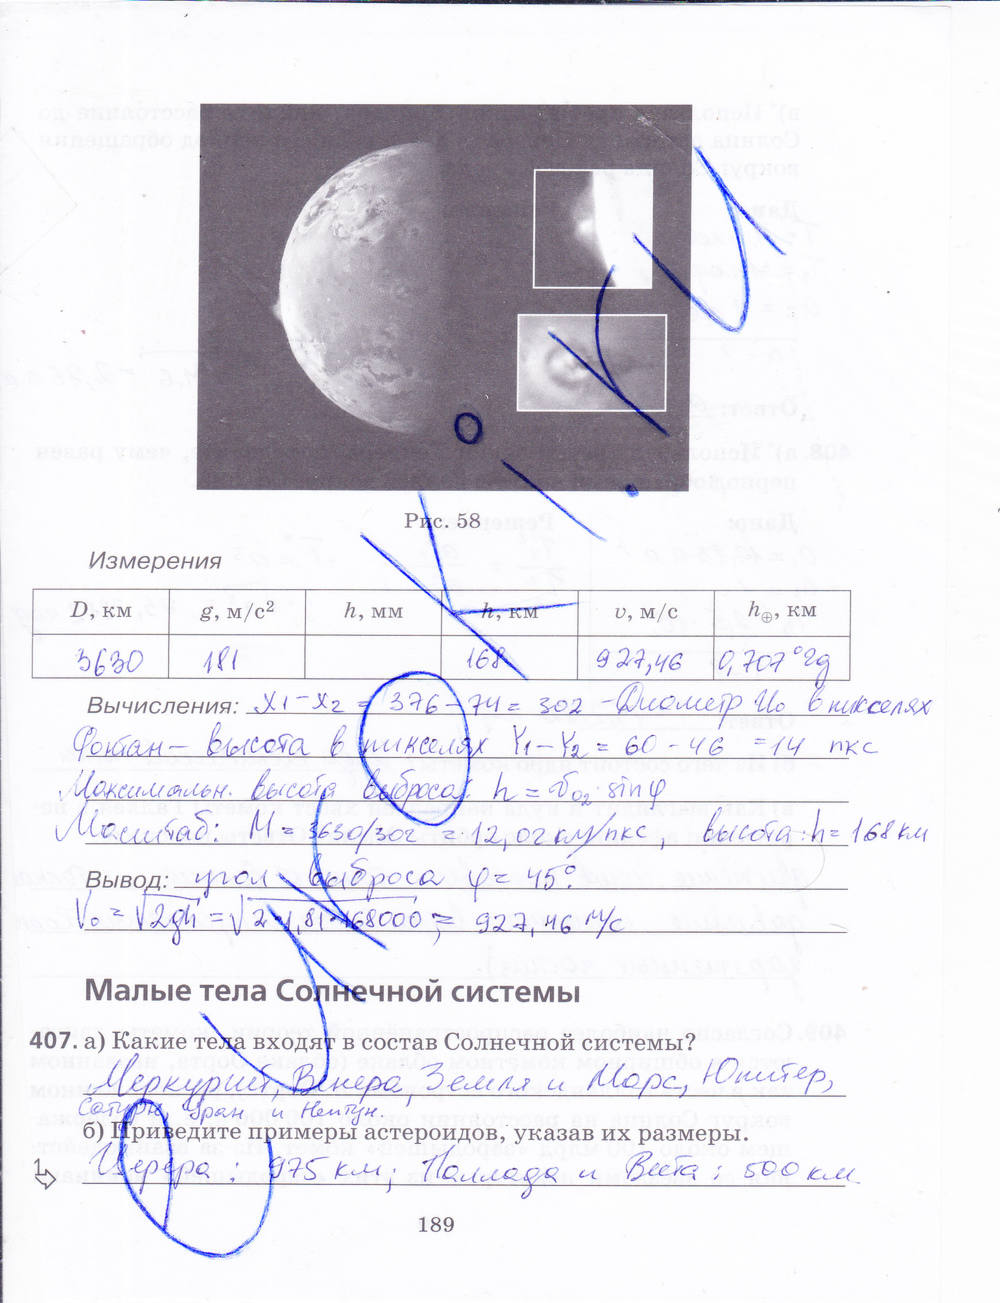 Рис. 58
Измерения
D, км g, м/с² h, мм h, км v, м/с h⊕, км
3630 181 168 927,46 0,707
Вычисления: X1 – X2 = 376 – 74 = 302 – Диаметр Ио в пикселях
Фонтан – высота в пикселях Y1 – Y2 = 60 – 46 = 14 пкс
Максимальн. высота выброса: h = sin φ
Масштаб: М = 3630/302 = 12,02 км/пкс, высота: h = 168 км
Вывод: угол выброса φ = 45°.
V₀ = √2gh = √2·1,81·168000 = 927,46 м/с
Малые тела Солнечной системы
407. а) Какие тела входят в состав Солнечной системы?
Меркурий, Венера, Земля и Марс, Юпитер,
Сатурн, Уран и Нептун.
б) Приведите примеры астероидов, указав их размеры.
Церера: 975 км; Паллада и Веста: 500 км
189